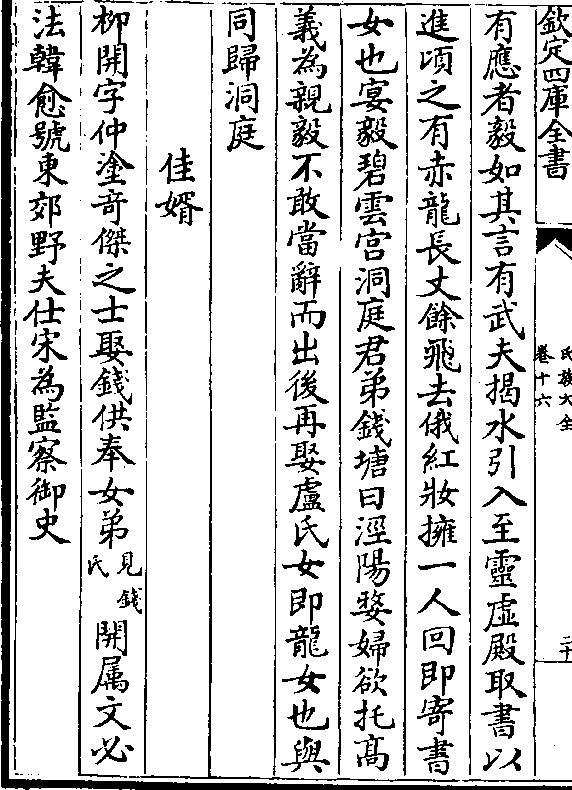 欽定四庫全書
氏族大全
卷十六
二十
有應者毅如其言有武夫揭水引入至靈虛殿取書以
進頃之有赤龍長丈餘飛去俄紅妝擁一人回即寄書
女也宴毅碧雲宮洞庭君弟錢塘曰涇陽嫠婦欲托高
義為親毅不敢當辭而出後再娶盧氏女即龍女也與
同歸洞庭
佳婿
柳開字仲塗竒傑之士娶錢供奉女弟見錢氏開属文必
法韓愈號東郊野夫仕宋為監察御史